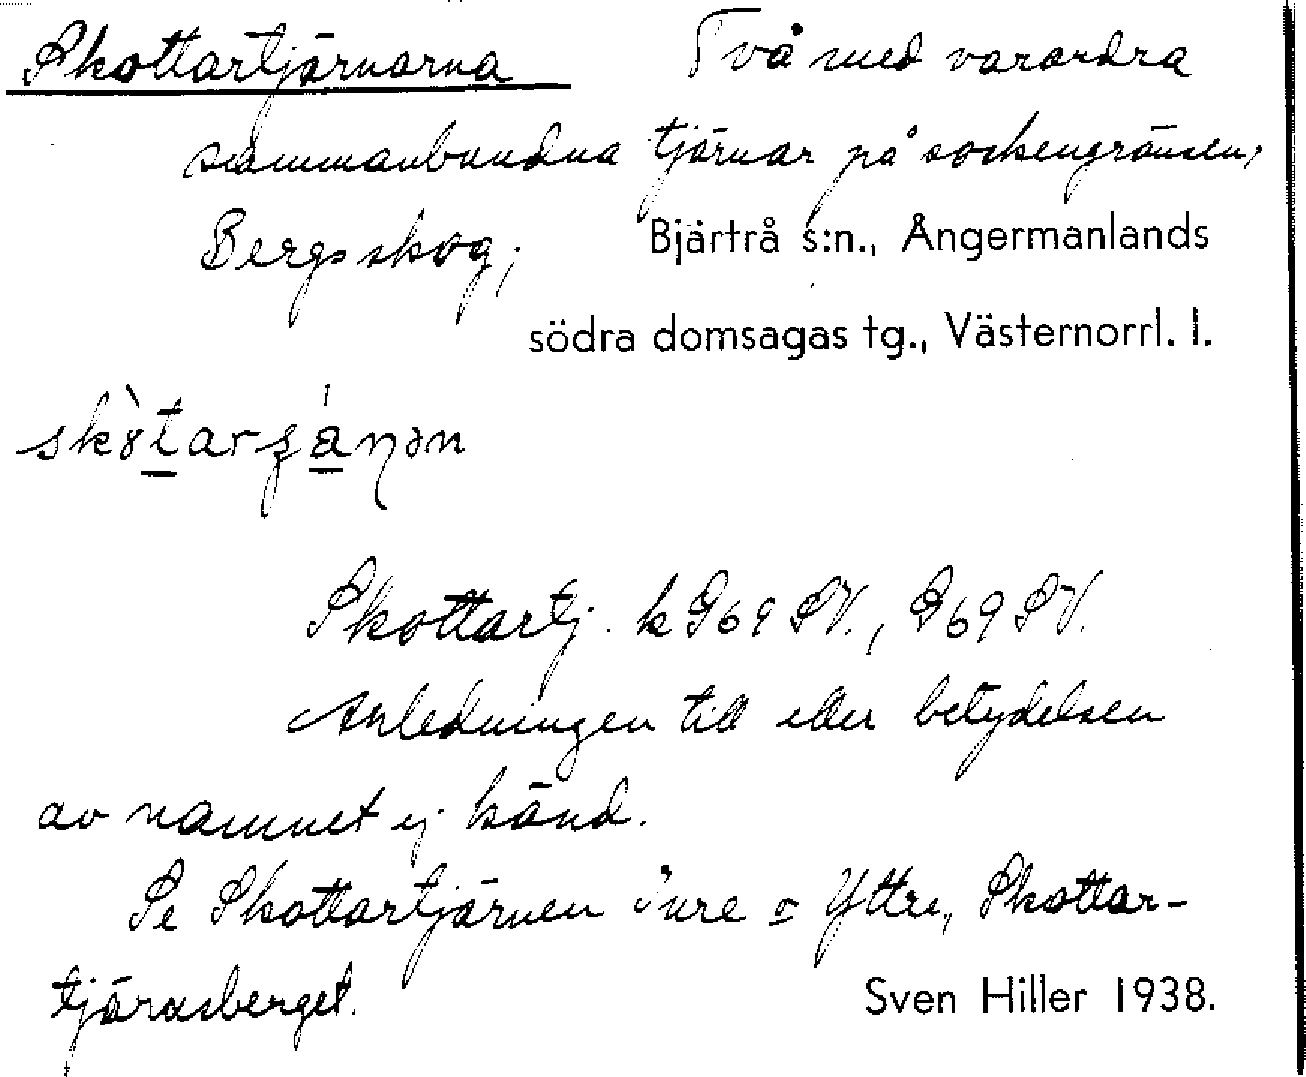 Skottartjärnarna Två med varandra
sammanbundna tjärnar på sockengränsen,
Bergs skog; Bjärtrå s:n., Ångermanlands
södra domsagas tg., Västernorrl. l.
Skottartj. k G69 SV., G69 SV.
Anledningen till eller betydelsen
av namnet ej känd.
Se Skottartjärnen inre o Yttre, Skottar-
tjärnsberget.
Sven Hiller 1938.